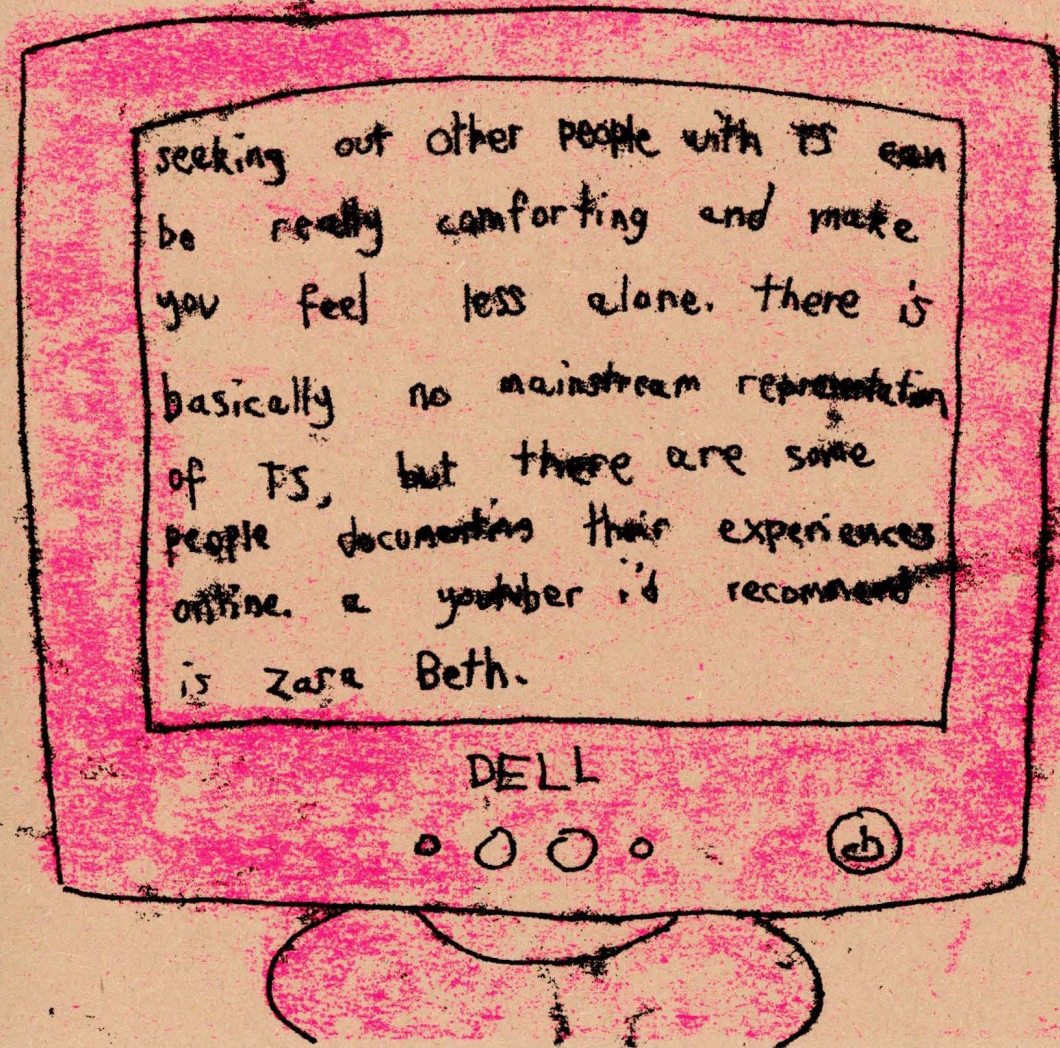 seeking out other people with TS can
be really comforting and make
you feel less alone. there is
basically no mainstream representation
of TS, but there are some
people documenting their experiences
online. a youtuber i'd recommend
is Zara Beth.
DELL